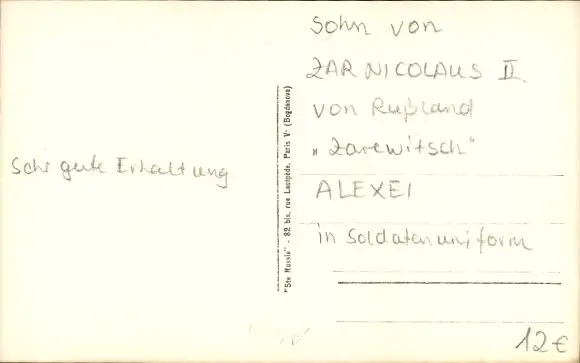 Sohn von
ZAR NICOLAUS II.
von Rußland
„Zarewitsch"
ALEXEI
in Soldatenuniform
Sehr gute Erhaltung
"Ste Russie" - 82 bis, rue Lacépède, Paris Vᵉ (Bogdanova)
12€